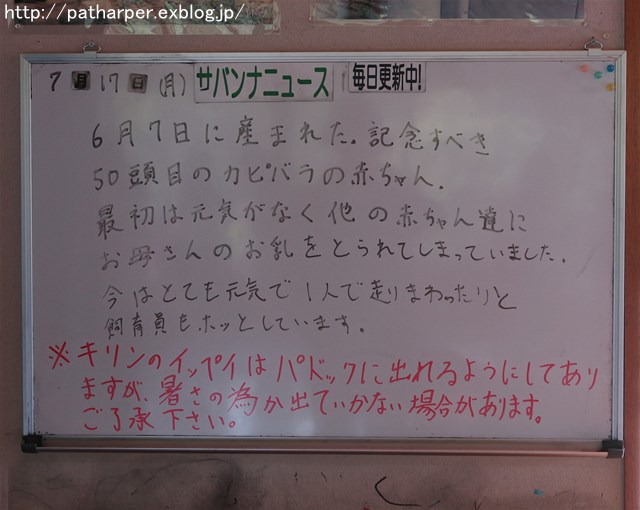 http://patharper.exblog.jp/
7月17日(月) サバンナニュース 毎日更新中!
6月7日に産まれた。記念すべき
50頭目のカピバラの赤ちゃん.
最初は元気がなく他の赤ちゃん達に
お母さんのお乳をとられてしまっていました.
今はとても元気で1人で走りまわったりと
飼育員もホッとしています。
※キリンのイップイはパドックに出れるようにしてあり
ますが、暑さの為か出ていかない場合があります。
ご了承下さい。